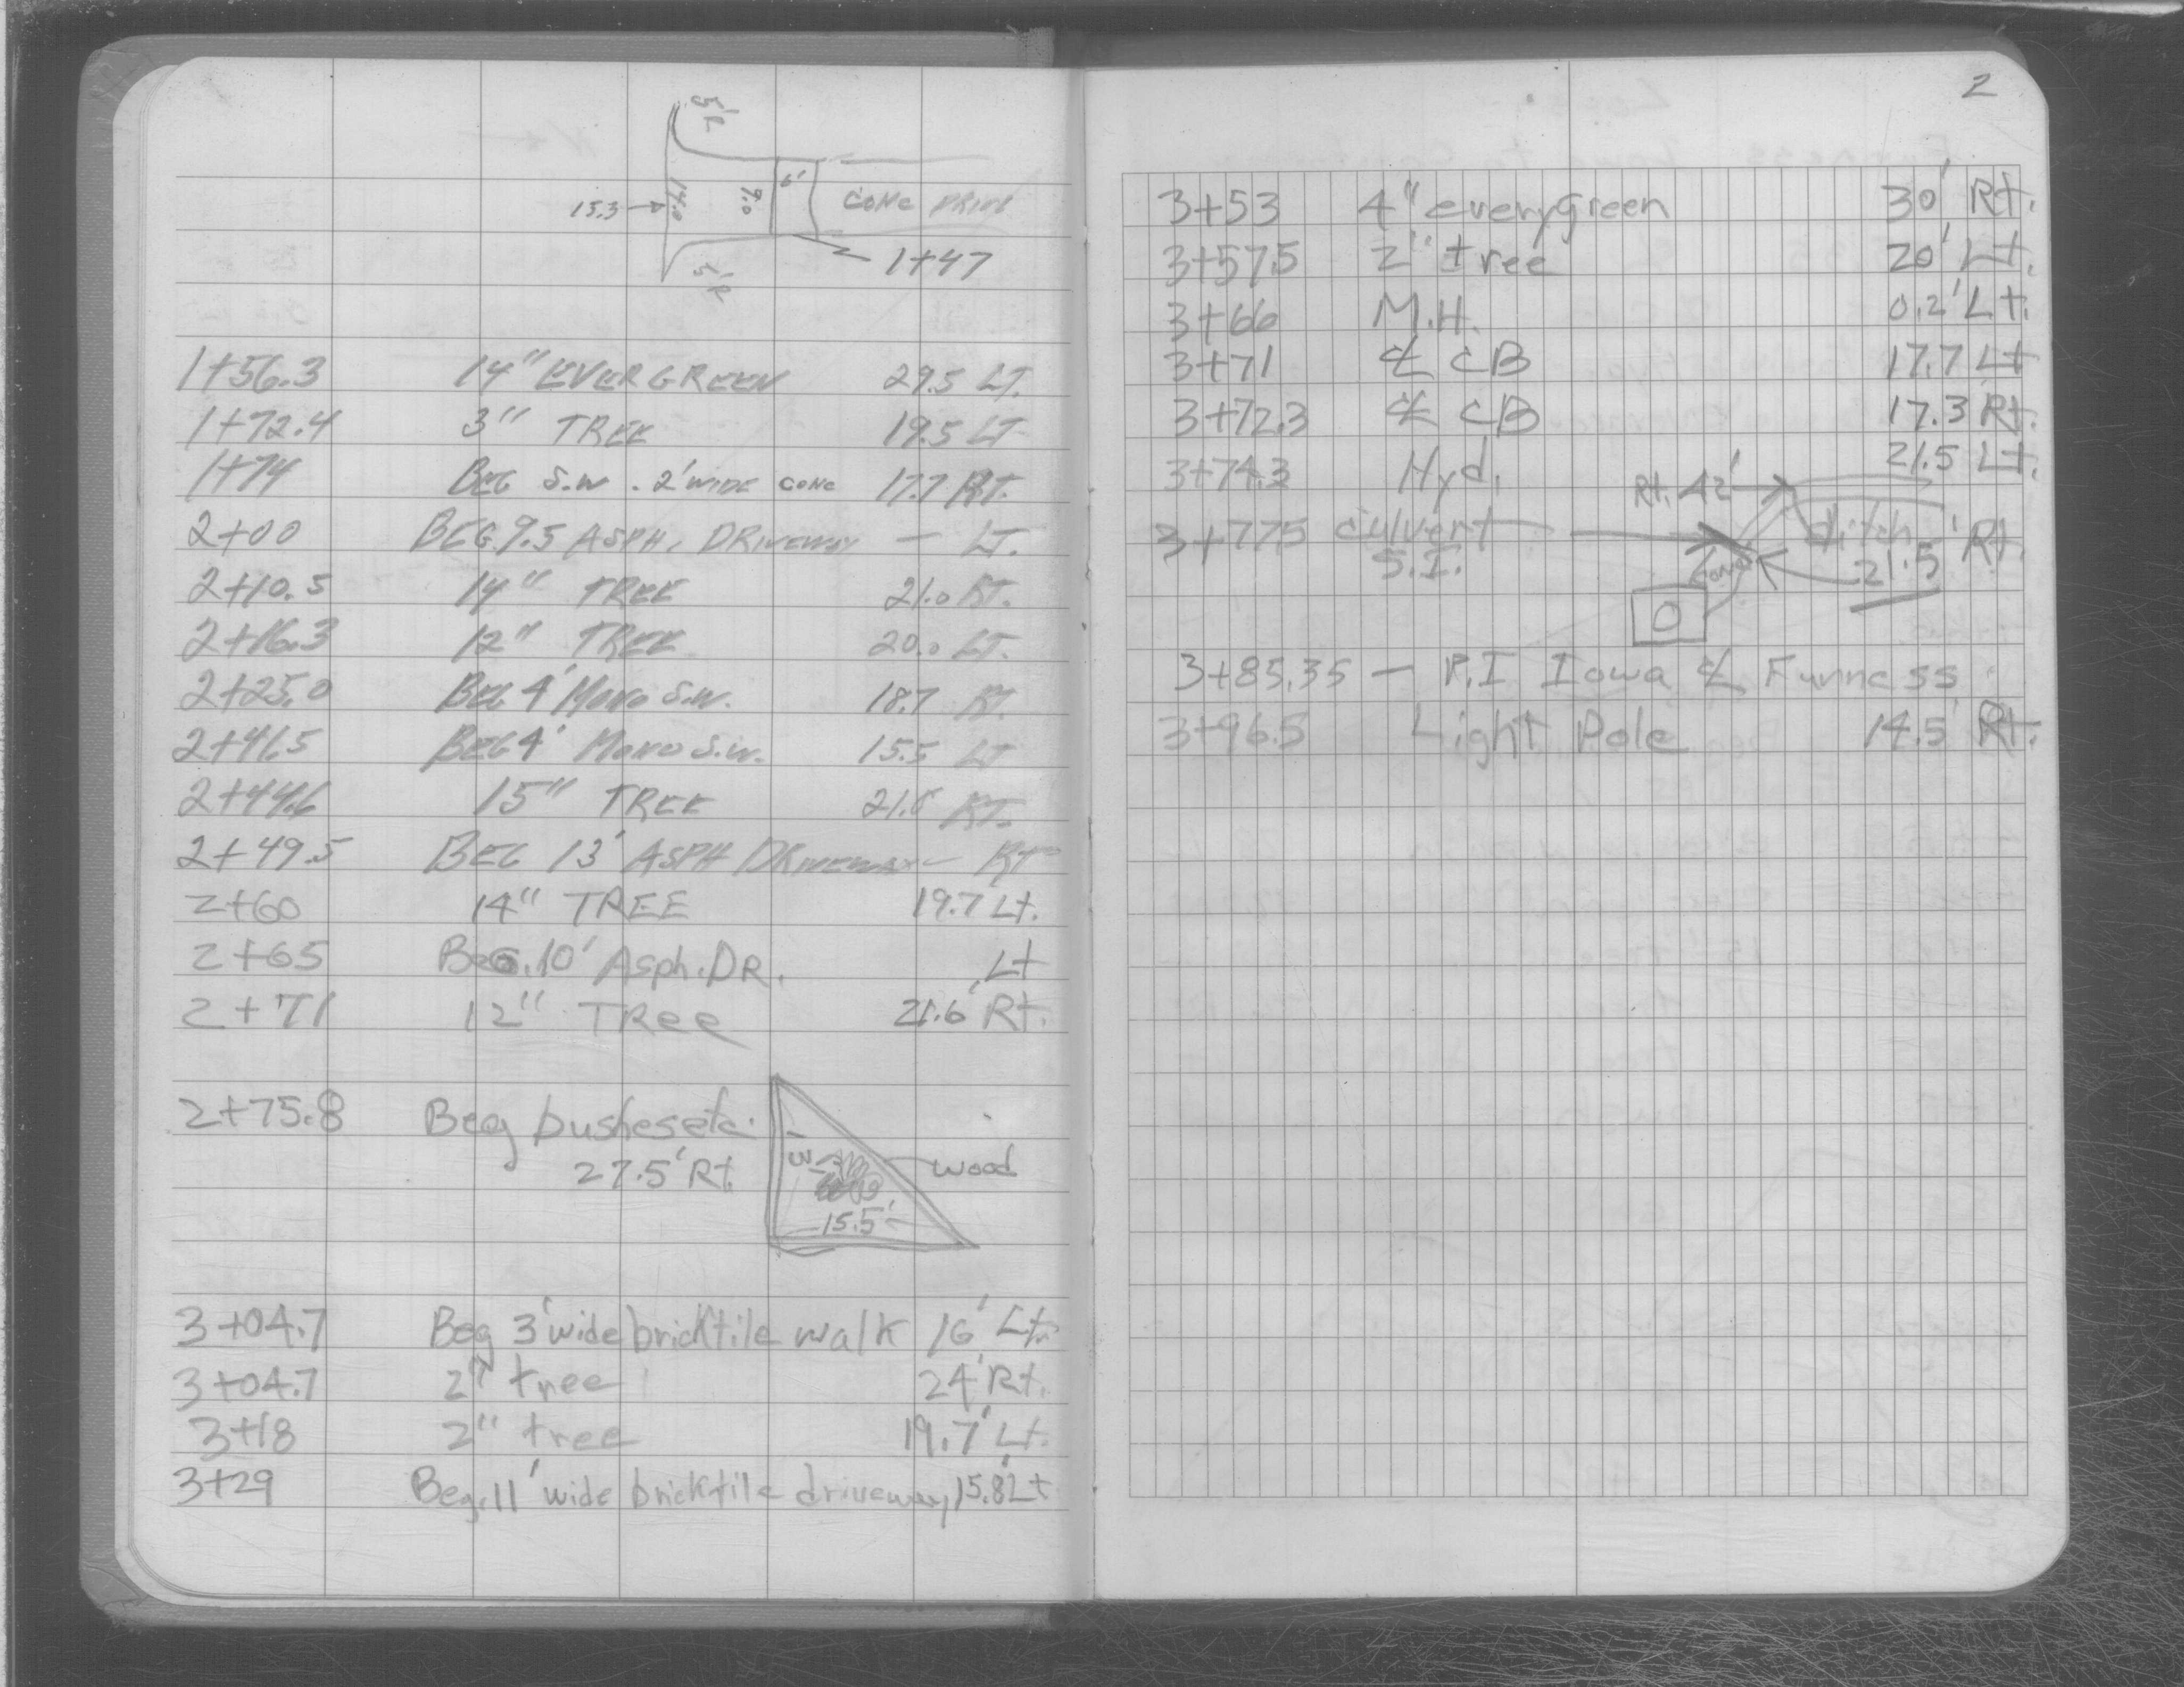 5'R
15.3 → 14.0 9.0 6' CONC DRIVE
1+47
5'R
1+56.3 14" EVERGREEN 29.5 LT.
1+72.4 3" TREE 19.5 LT
1+74 BEG S.W. 2' WIDE CONC 17.7 RT.
2+00 BEG. 9.5 ASPH. DRIVEWAY — LT.
2+10.5 14" TREE 21.0 RT.
2+16.3 12" TREE 20.0 LT.
2+25.0 BEG 4' MONO S.W. 18.7 RT.
2+41.5 BEG 4' MONO S.W. 15.5 LT
2+44.6 15" TREE RT.
2+49.5 BEG 13' ASPH DRIVEWAY — RT
2+60 14" TREE 19.7 Lt.
2+65 BEG. 10' Asph. DR. Lt
2+71 12" TRee 21.6' Rt.
2+75.8 Beg bushes etc.
27.5' Rt.
wood
15.5'
3+04.7 Beg 3' wide bricktile walk 16' Lt.
3+04.7 2" tree 24' Rt.
3+18 2" tree 19.7' Lt.
3+29 Beg. 11' wide bricktile driveway 15.8' Lt
2
3+53 4" evergreen 30' Rt.
3+57.5 2" tree 20' Lt.
3+66 M.H. 0.2' Lt.
3+71 ℄ CB 17.7 Lt
3+72.3 ℄ CB 17.3 Rt.
3+74.3 Hyd. 21.5 Lt.
Rt. 42' →
3+77.5 culvert ditch
S.I. conc 21.5' Rt.
3+85.35 — P.I Iowa ℄ Furness
3+96.5 Light Pole 14.5' Rt.